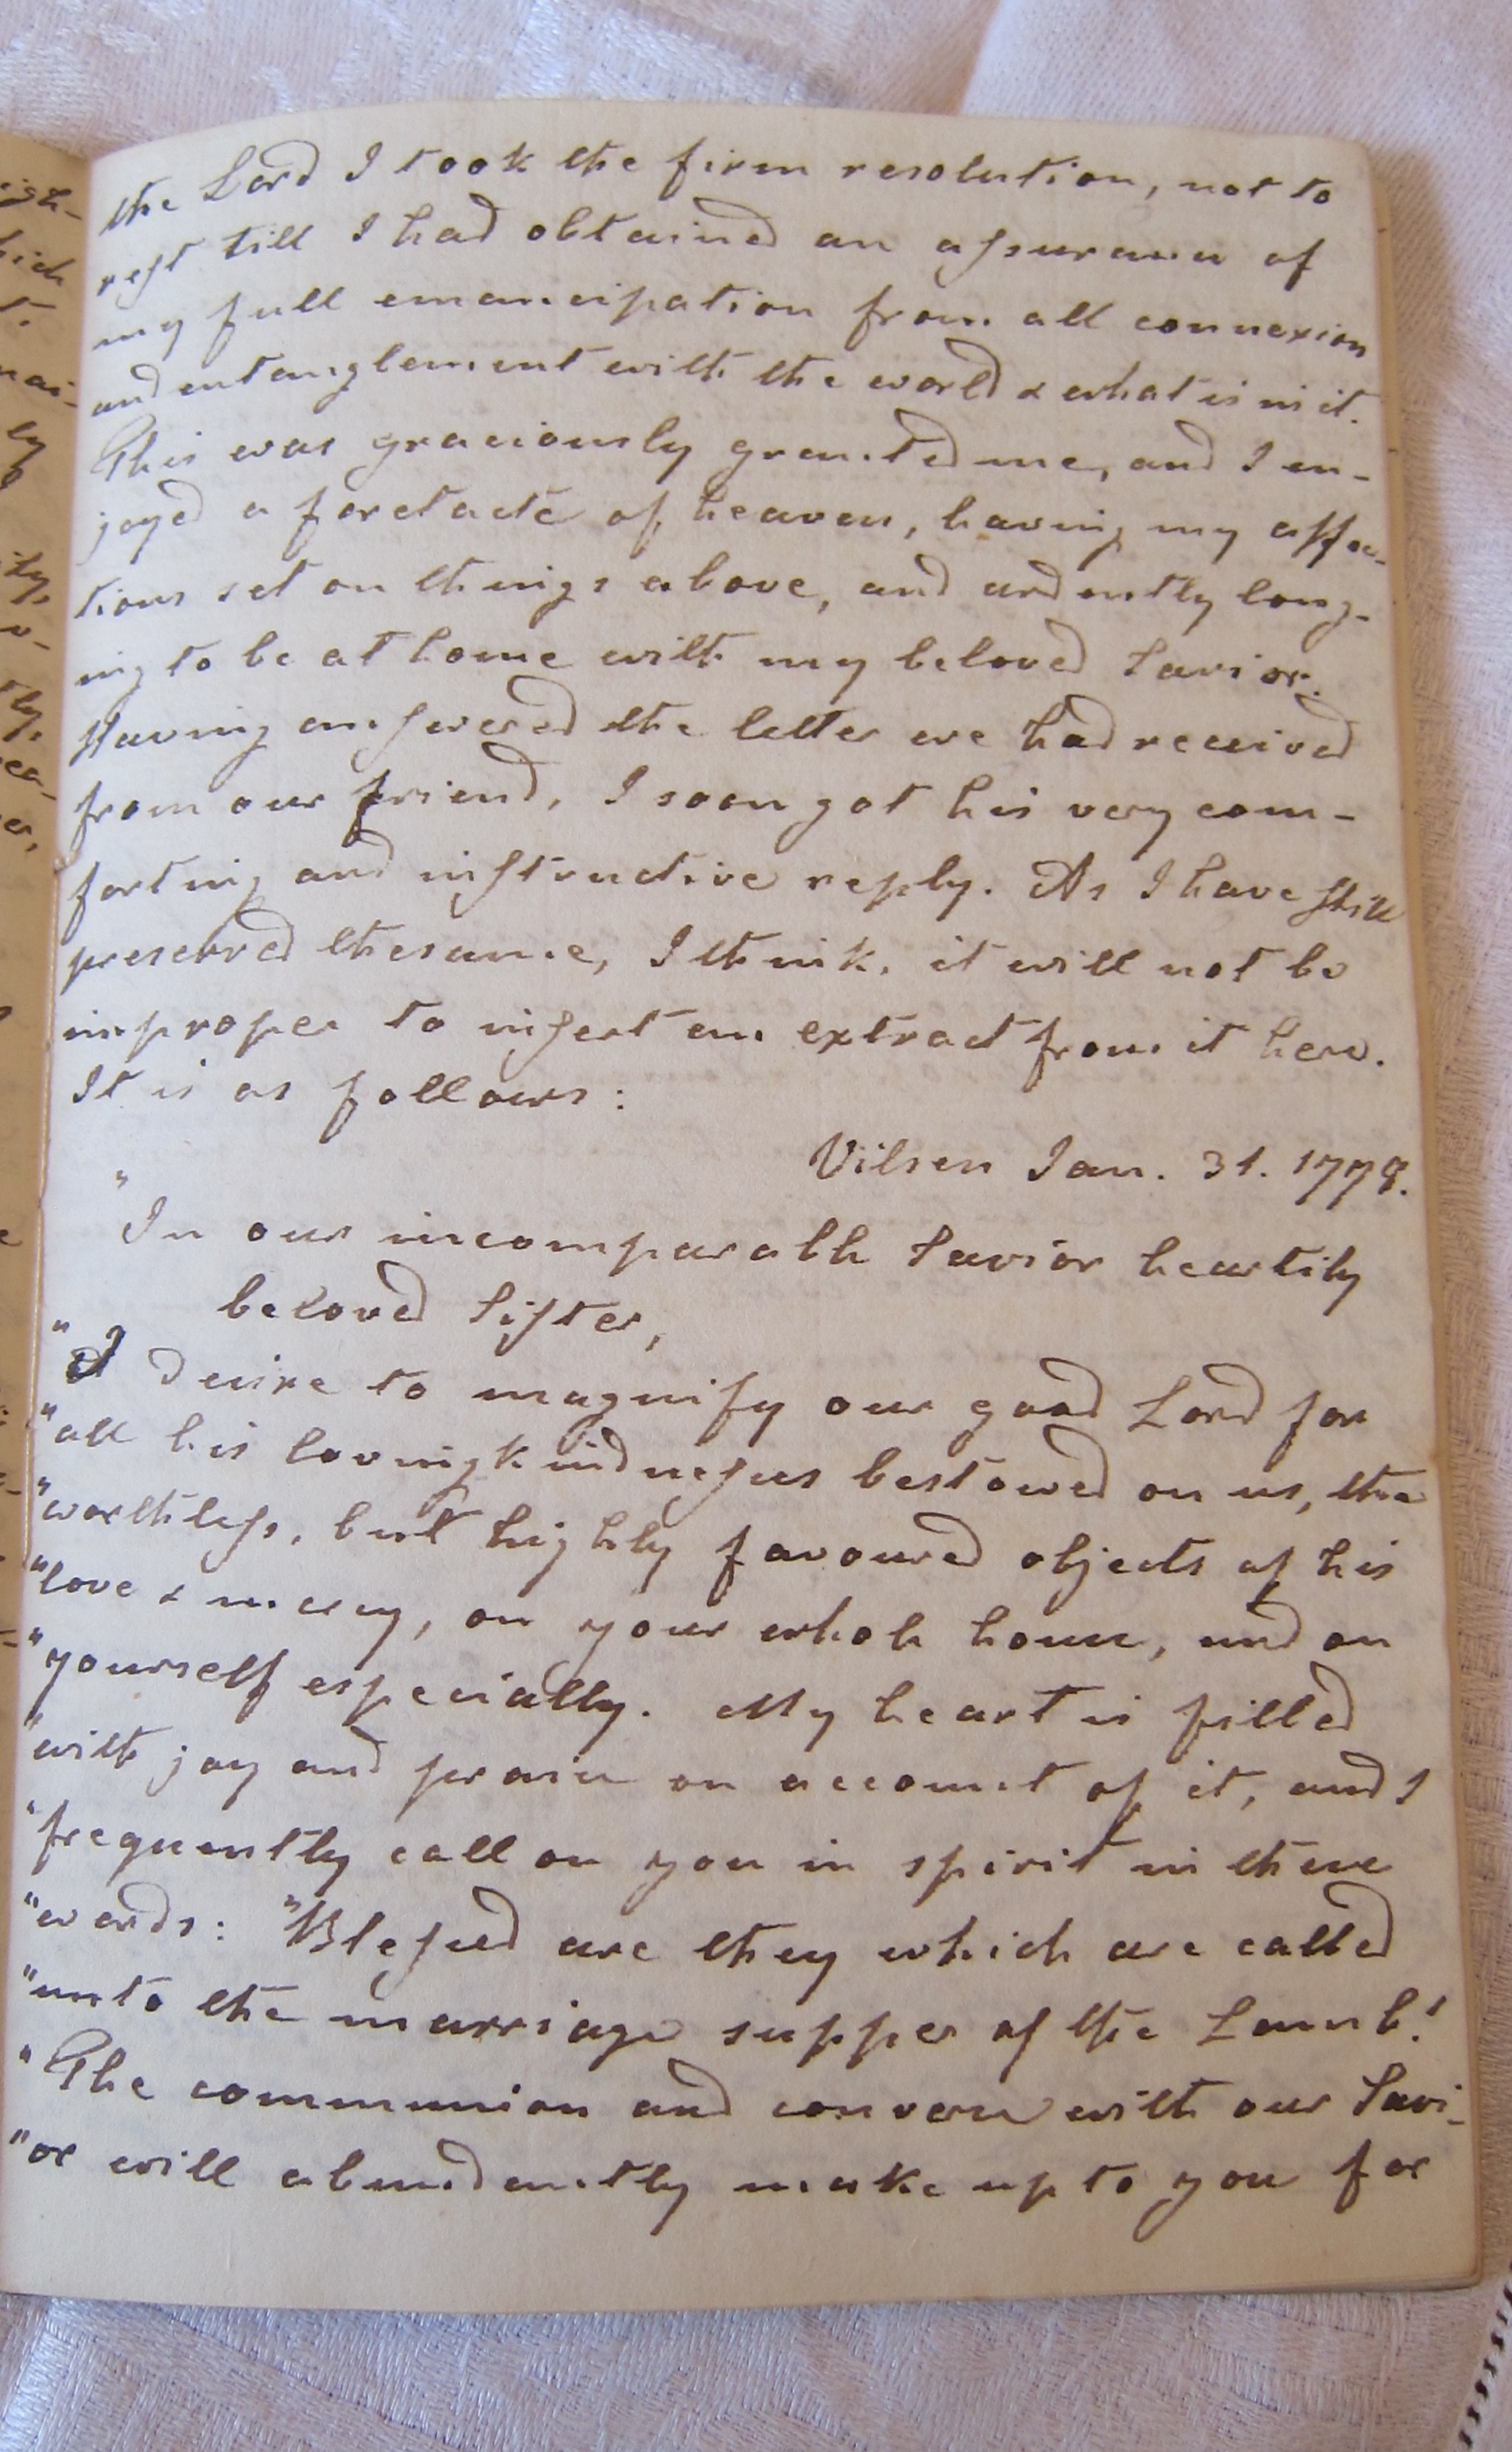 the Lord I took the firm resolution, not to
rest till I had obtained an assurance of
my full emancipation from all connexion
and entanglement with the world & what is in it.
This was graciously granted me, and I en-
joyed a foretaste of heaven, having my affec-
tions set on things above, and ardently long-
ing to be at home with my beloved Savior.
Having answered the letter we had received
from our friend, I soon got his very com-
forting and instructive reply. As I have still
preserved thesame, I think, it will not be
improper to insert an extract from it here.
It is as follows:
Vilsen Jan. 31. 1778.
"In our incomparable Savior heartily
beloved Sister,
"I desire to magnify our good Lord for
"all his lovingkindnesses bestowed on us, the
"worthless, but highly favoured objects of his
"love & mercy, on your whole house, and on
"yourself especially. My heart is filled
"with joy and praise on account of it, and I
"frequently call on you in spirit in these
"words: "Blessed are they which are called
"unto the marriage supper of the Lamb!
"The communion and converse with our Savi-
"or will abundantly make up to you for